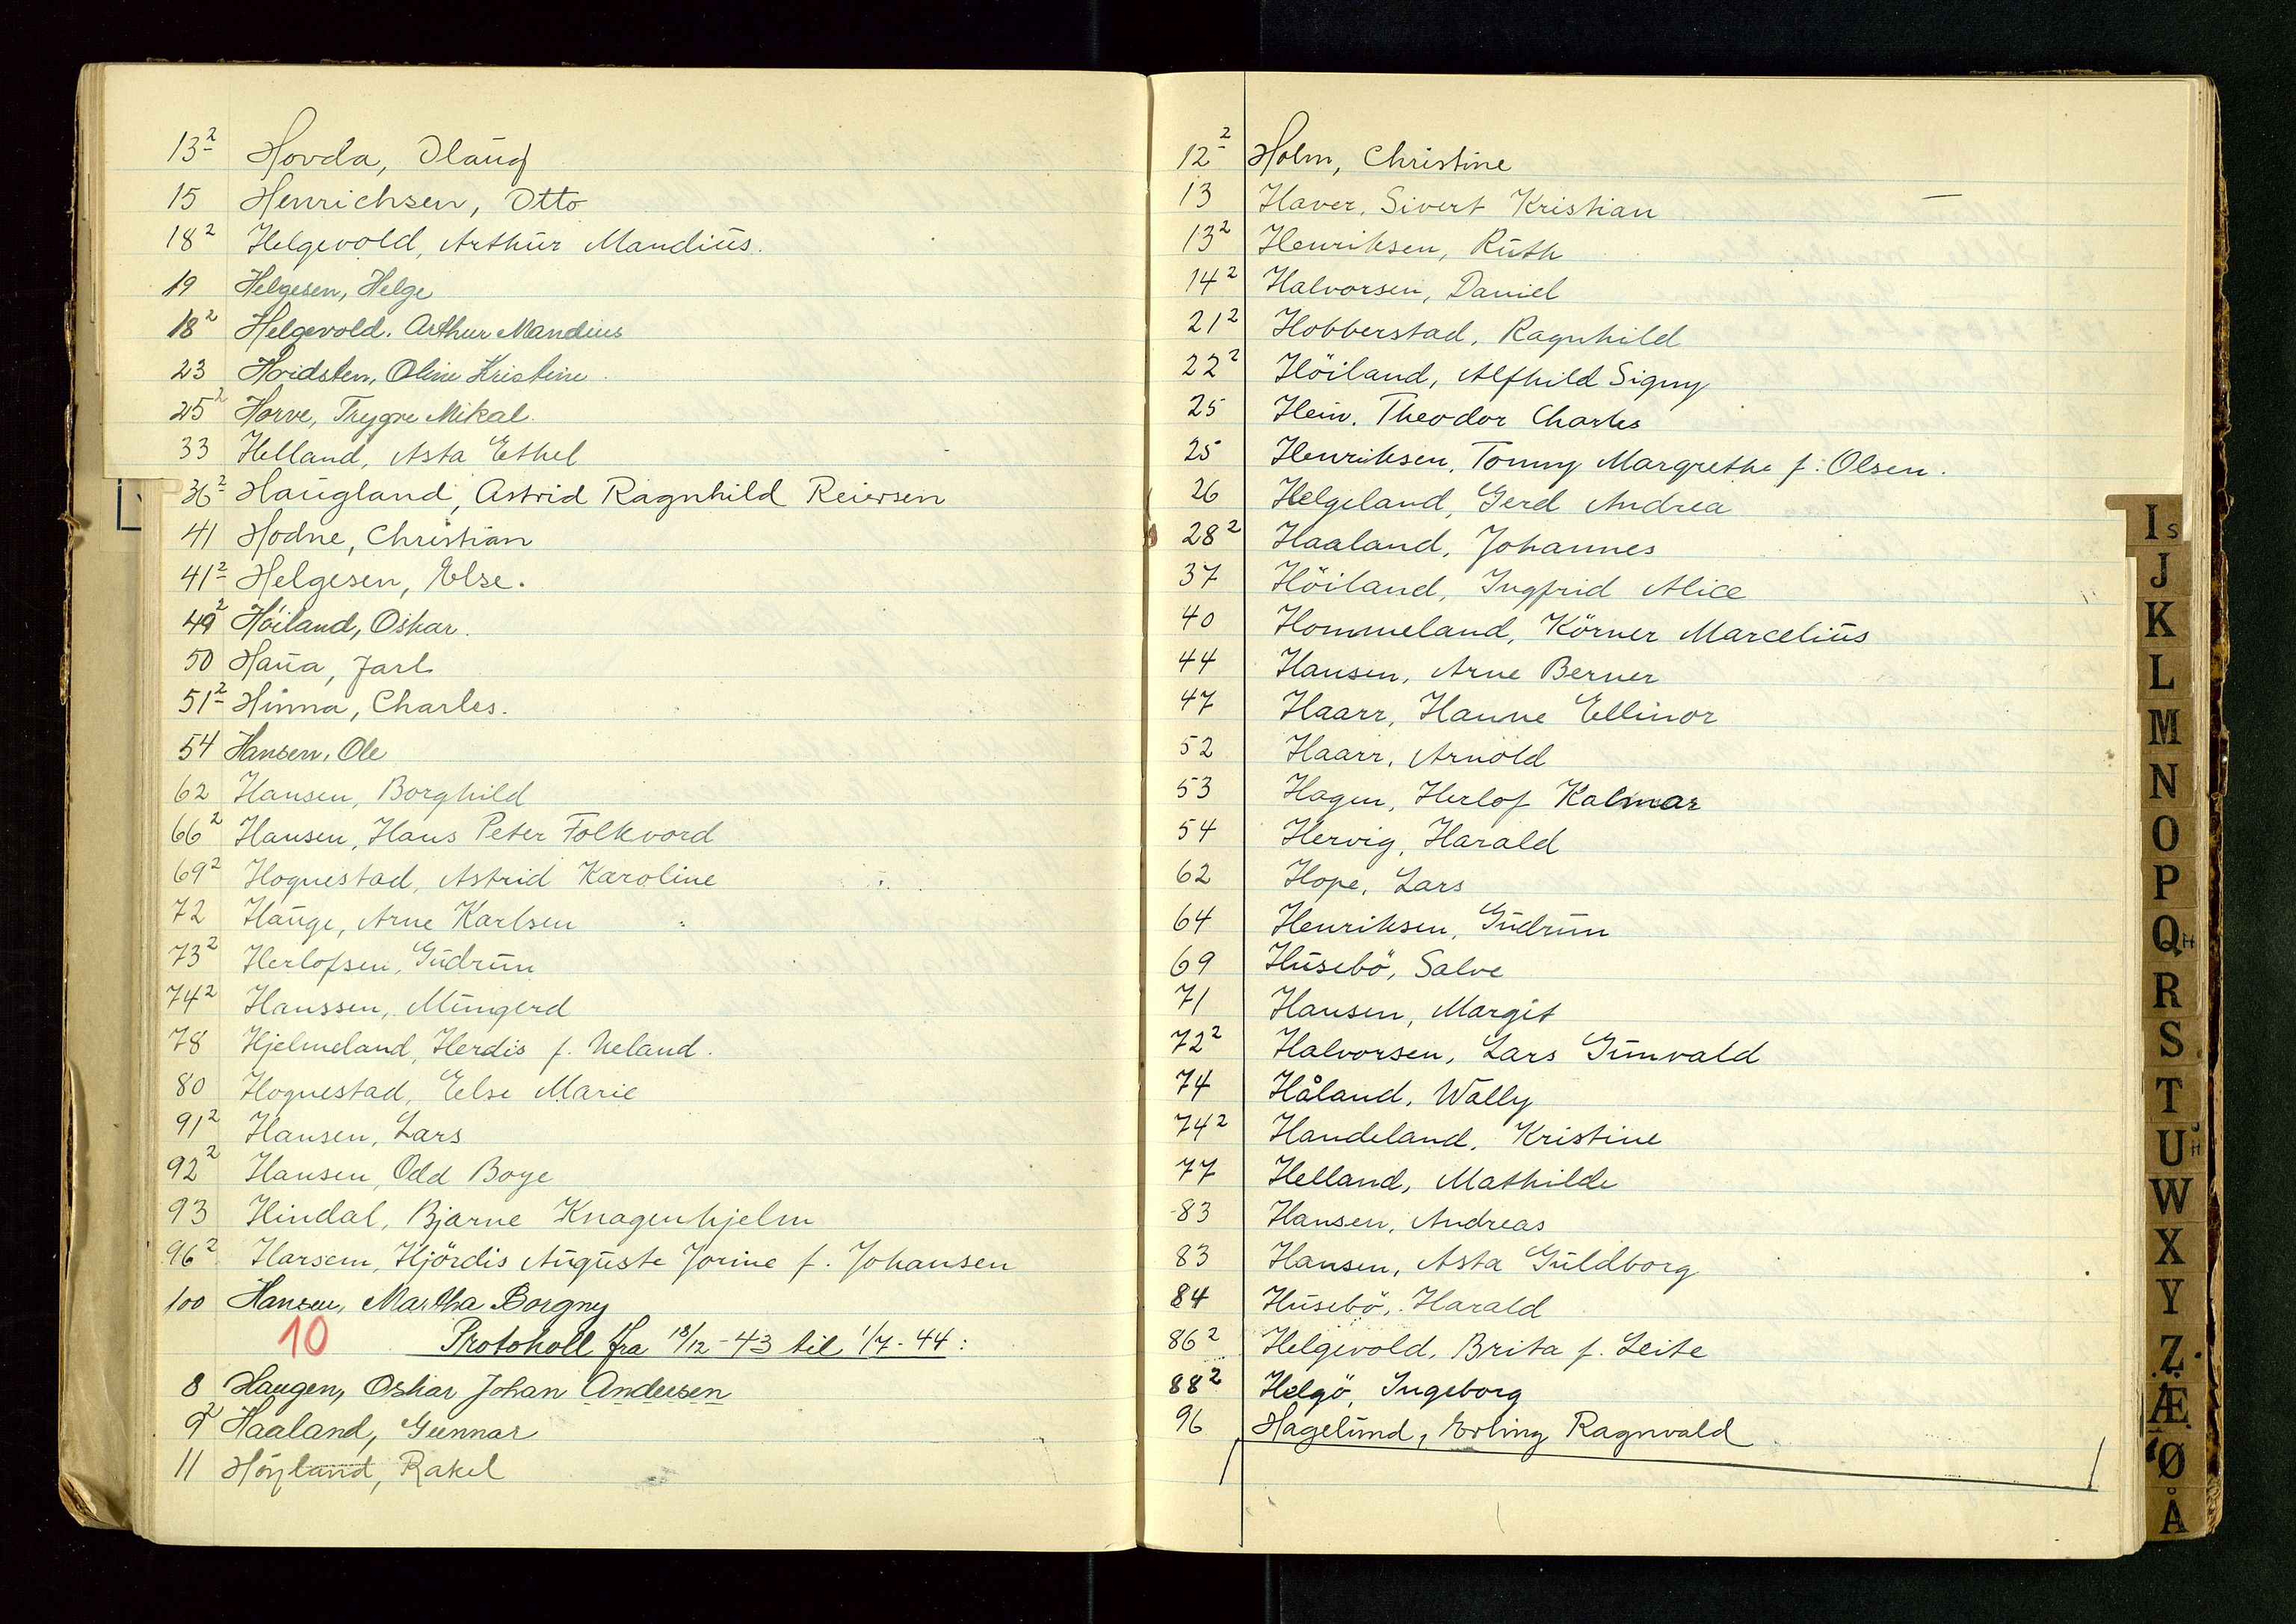 13² Hovda, Olaug
15 Henrichsen, Otto
18² Helgevold, Arthur Mandius.
19 Helgesen, Helge
18² Helgevold. Arthur Mandius
23 Hvidsten, Oline Kristine.
25² Horve, Trygve Mikal.
33 Helland, Asta Ethel
36² Haugland, Astrid Ragnhild Reiersen
41 Hodne, Christian
41² Helgesen, Else.
49² Höiland, Oskar.
50 Haua, Jarl
51² Hinna, Charles.
54 Hansen, Ole
62 Hansen, Borghild
66² Hansen, Hans Peter Folkvord
69² Hognestad, Astrid Karoline
72 Hauge, Arne Karlsen
73² Herlofsen, Gudrun
74² Hanssen, Mungerd
78 Hjelmeland, Herdis f. Ueland.
80 Hognestad, Else Marie
91² Hansen, Lars
92² Hansen, Odd Boye
93 Hindal, Bjarne Knagenhjelm
96² Harsem, Hjördis Auguste Jorine f. Johansen
100 Hansen, Martha Borgny
10 Protokoll fra 18/12-43 til 1/7-44:
8 Haugen, Oskar Johan Andersen
9² Haaland, Gunnar
11 Höyland, Rakel
12² Holm, Christine
13 Haver, Sivert Kristian —
13² Henriksen, Ruth
14² Halvorsen, Daniel
21² Hobberstad, Ragnhild
22² Höiland, Alfhild Signy
25 Hein. Theodor Charles
25 Henriksen, Tommy Margrethe f. Olsen.
26 Helgeland, Gerd Andrea
28² Haaland, Johannes
37 Höiland, Ingfrid Alice
40 Hommeland, Körner Marcelius
44 Hansen, Arne Berner
47 Haarr, Hanne Ellinor
52 Haarr, Arnold
53 Hagen, Herlof Kalmar
54 Hervig, Harald
62 Hope, Lars
64 Henriksen, Gudrun
69 Husebö, Salve
71 Hansen, Margit
72² Halvorsen, Lars Gunvald
74 Håland, Wally
74² Handeland, Kristine
77 Helland, Mathilde
83 Hansen, Andreas
83 Hansen, Asta Guldborg
84 Husebö, Harald
86² Helgevold, Brita f. Leite
88² Helgö, Ingeborg
96 Hagelund, Erling Ragnvald
I s
J
K
L
M
N
O
P
Q H
R
S
T
U H
W
X
Y
Z
Æ
Ø
Å